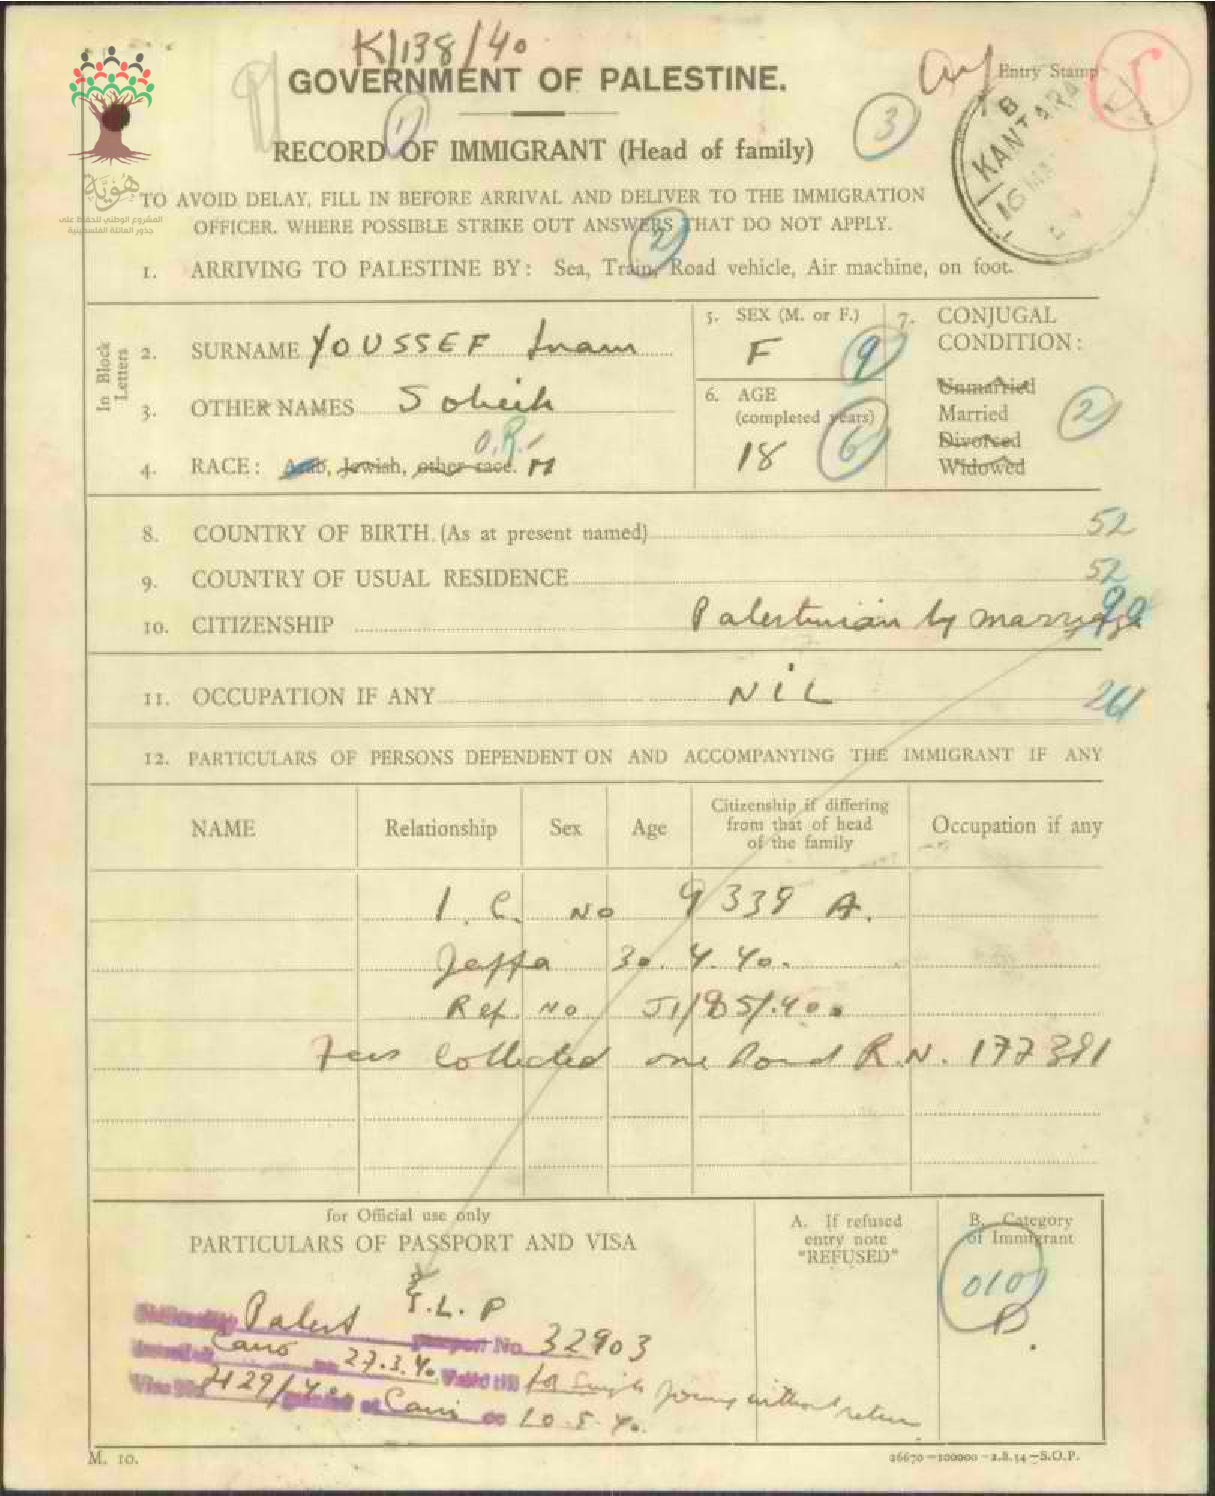 K/138/40
GOVERNMENT OF PALESTINE.
Entry Stamp
KANTARA
16
1
3
RECORD OF IMMIGRANT (Head of family)
هُوِيَّة
المشروع الوطني للحفاظ على
جذور العائلة الفلسطينية
TO AVOID DELAY, FILL IN BEFORE ARRIVAL AND DELIVER TO THE IMMIGRATION
OFFICER. WHERE POSSIBLE STRIKE OUT ANSWERS THAT DO NOT APPLY.
2
1. ARRIVING TO PALESTINE BY: Sea, Train, Road vehicle, Air machine, on foot.
In Block Letters
2. SURNAME YOUSSEF Inam
3. OTHER NAMES Sobeih
O.R.
4. RACE: Arab, Jewish, other race. M
5. SEX (M. or F.)
F 9
6. AGE
(completed years)
18 6
7. CONJUGAL
CONDITION:
Unmarried
Married 2
Divorced
Widowed
8. COUNTRY OF BIRTH (As at present named) 52
9. COUNTRY OF USUAL RESIDENCE 52
10. CITIZENSHIP Palestinian by marriage 99
11. OCCUPATION IF ANY NIL
12. PARTICULARS OF PERSONS DEPENDENT ON AND ACCOMPANYING THE IMMIGRANT IF ANY
NAME Relationship Sex Age Citizenship if differing from that of head of the family Occupation if any
I. C. No 9339 A.
Jaffa 30.4.40.
Ref. No J1/85/.40.
Fees Collected one Pound R.N. 177391
for Official use only
PARTICULARS OF PASSPORT AND VISA
A. If refused
entry note
"REFUSED"
B. Category
of Immigrant
010
B
T.L.P
Nationality Palest. Passport No. 32903
Issued at Cairo on 27.3.40 Valid till for Single journey without return
Visa No 4129/40 granted at Cairo on 10.5.40.
M. 10.
26670—100000—2.8.34—S.O.P.